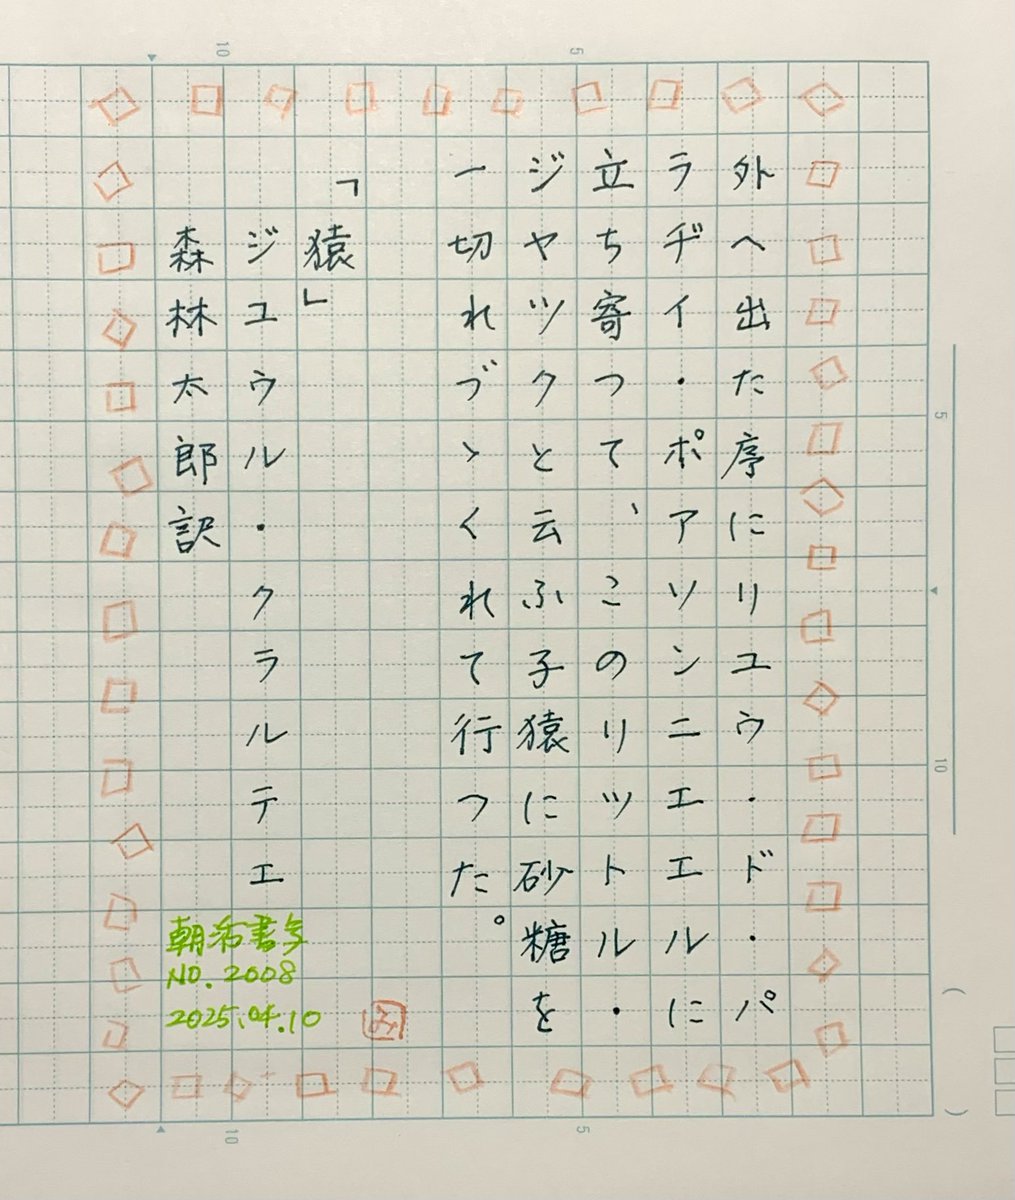 外へ出た序にリユウ・ド・パ
ラヂイ・ポアソンニエエルに
立ち寄つて、このリツトル・
ジヤツクと云ふ子猿に砂糖を
一切れづゝくれて行つた。
「猿」
ジユウル・クラルテエ
森林太郎訳
朝活書写
NO.2008
2025.04.10
10
5
5
10
10
5